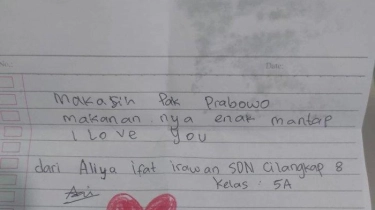 Makasih Pak Prabowo
makanan nya enak mantap
I Love you
dari Aliya ifat irawan SDN Cilangkap 8
Kelas : 5A